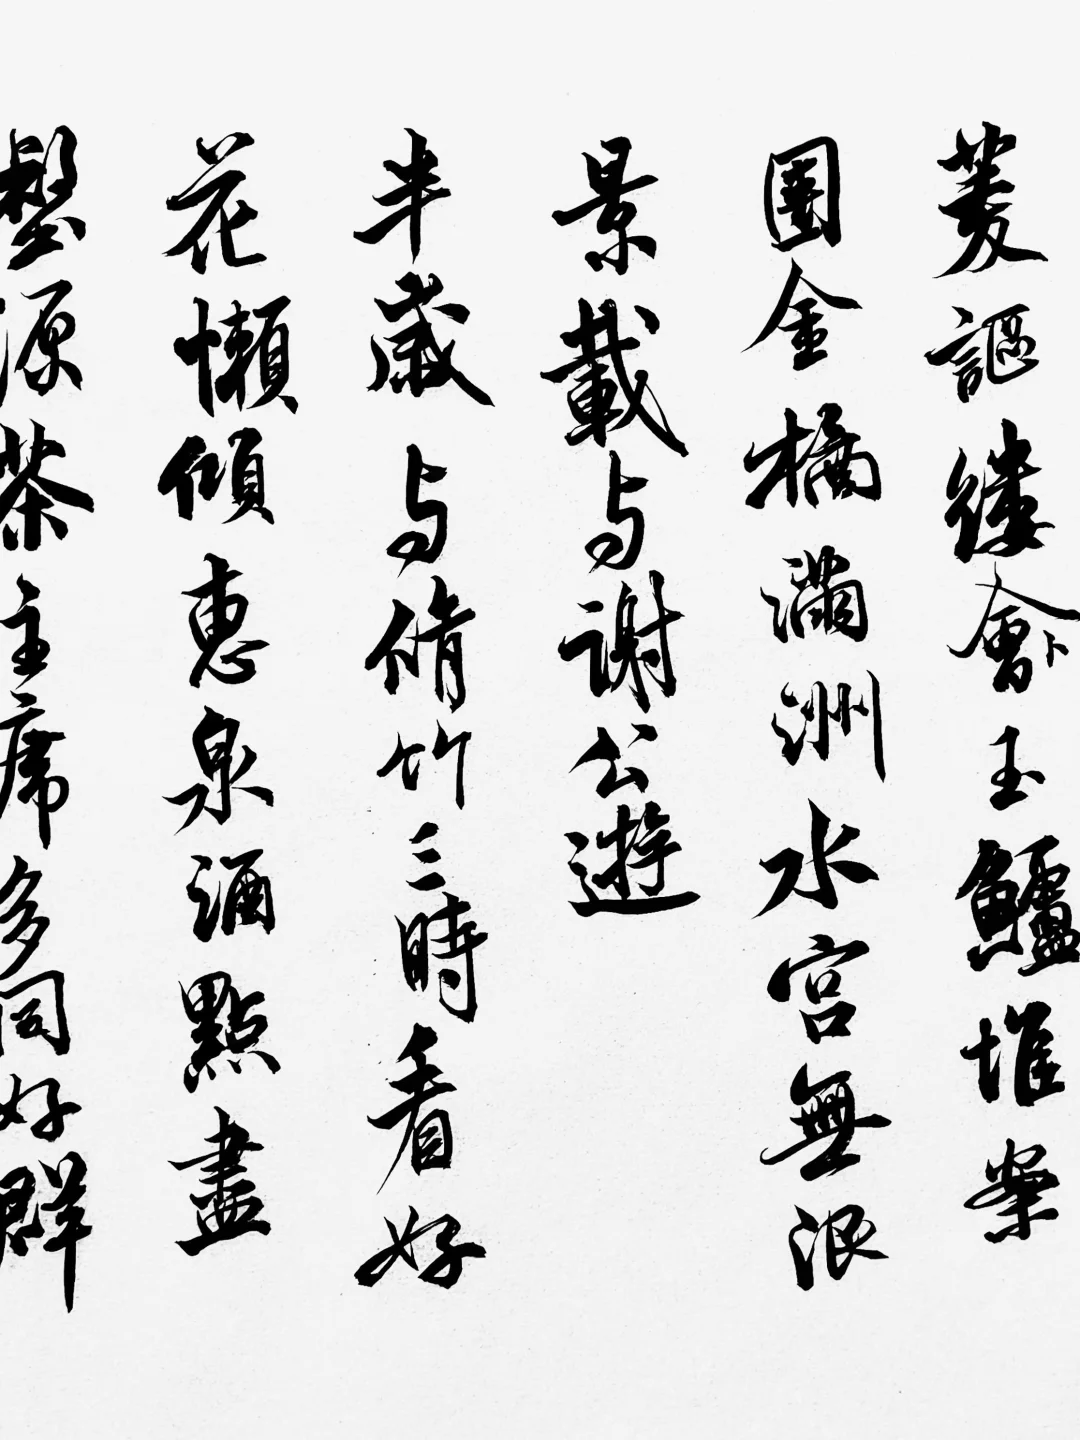 菱謳縷會玉鱸堆案
團金橘滿洲水宮無限
景載与謝公遊
半歲与脩竹三時看好
花懶傾惠泉酒點盡
壑源茶主席多同好群